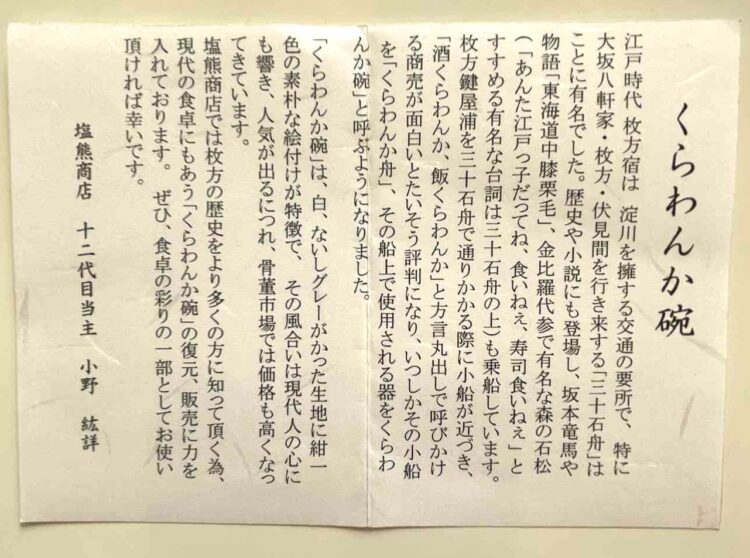 くらわんか碗
江戸時代 枚方宿は 淀川を擁する交通の要所で、特に
大坂八軒家・枚方・伏見間を行き来する「三十石舟」は
ことに有名でした。歴史や小説にも登場し、坂本竜馬や
物語「東海道中膝栗毛」、金比羅代参で有名な森の石松
(「あんた江戸っ子だってね、食いねえ、寿司食いねぇ」と
すすめる有名な台詞は三十石舟の上)も乗船しています。
枚方鍵屋浦を三十石舟で通りかかる際に小船が近づき、
「酒くらわんか、飯くらわんか」と方言丸出しで呼びかけ
る商売が面白いとたいそう評判になり、いつしかその小船
を「くらわんか舟」、その船上で使用される器をくらわ
んか碗」と呼ぶようになりました。
「くらわんか碗」は、白、ないしグレーがかった生地に紺一
色の素朴な絵付けが特徴で、その風合いは現代人の心に
も響き、人気が出るにつれ、骨董市場では価格も高くなっ
てきています。
塩熊商店では枚方の歴史をより多くの方に知って頂く為、
現代の食卓にもあう「くらわんか碗」の復元、販売に力を
入れております。 ぜひ、食卓の彩りの一部としてお使い
頂ければ幸いです。
塩熊商店 十二代目当主 小野 紘詳